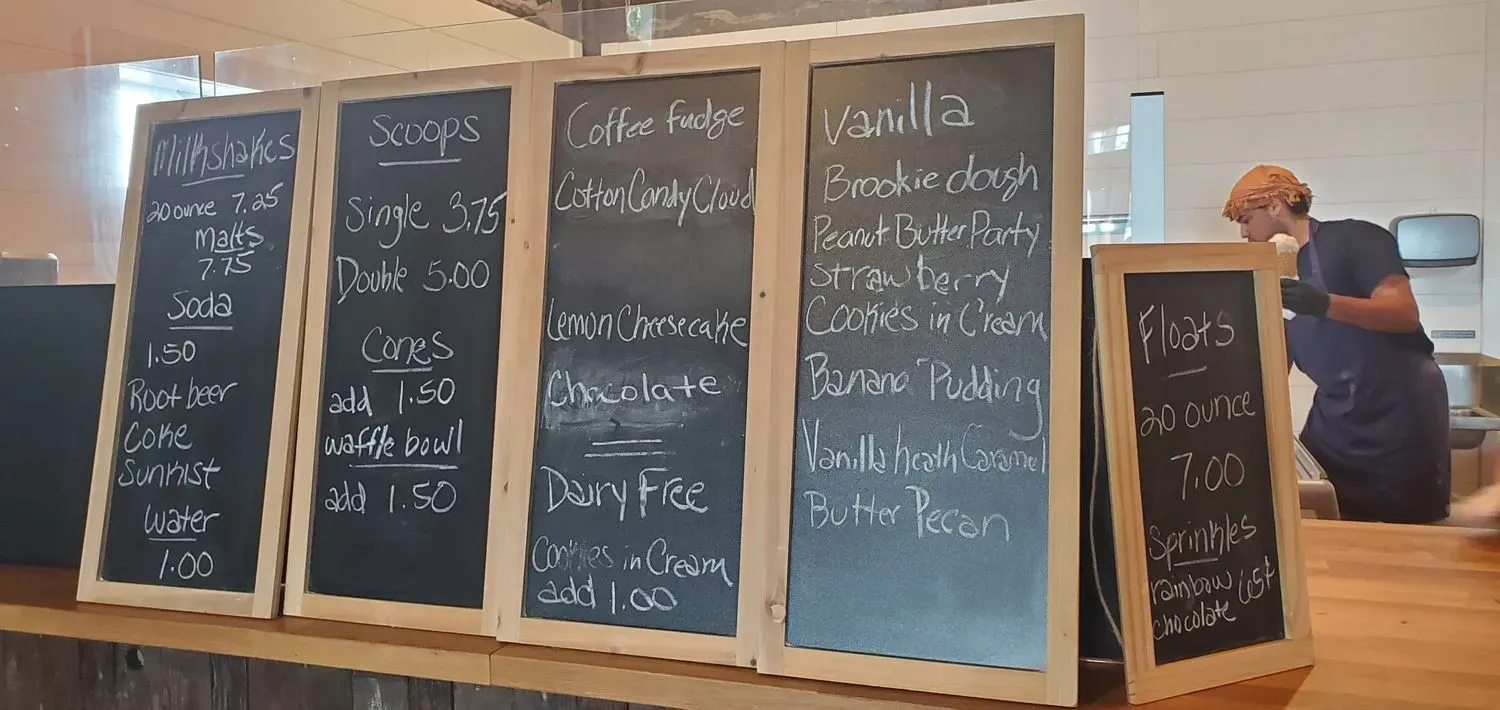 Milkshakes
20 ounce 7.25
Malts
7.75
Soda
1.50
Root beer
Coke
Sunkist
Water
1.00
Scoops
Single 3.75
Double 5.00
Cones
add 1.50
waffle bowl
add 1.50
Coffee fudge
Cotton Candy Cloud
Lemon Cheesecake
Chocolate
Dairy Free
Cookies in Cream
add 1.00
Vanilla
Brookie dough
Peanut Butter Party
Strawberry
Cookies in Cream
Banana Pudding
Vanilla heath Caramel
Butter Pecan
Floats
20 ounce
7.00
Sprinkles
rainbow 65¢
chocolate